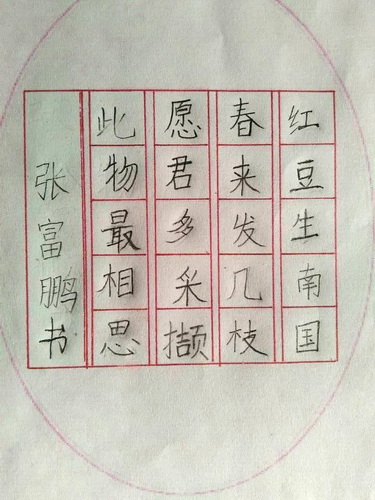 红豆生南国
春来发几枝
愿君多采撷
此物最相思
张富鹏书